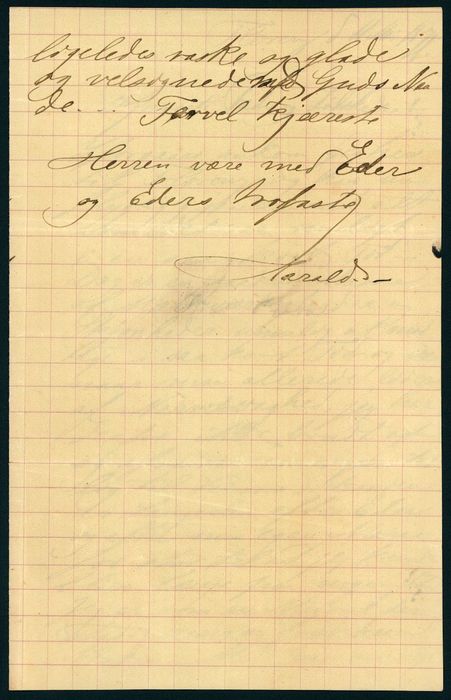 ligeledes raske og glade
og velsignede af Guds Naa
de... Farvel Kjæreste
Herren være med Eder
og Eders trofaste
Harald.-